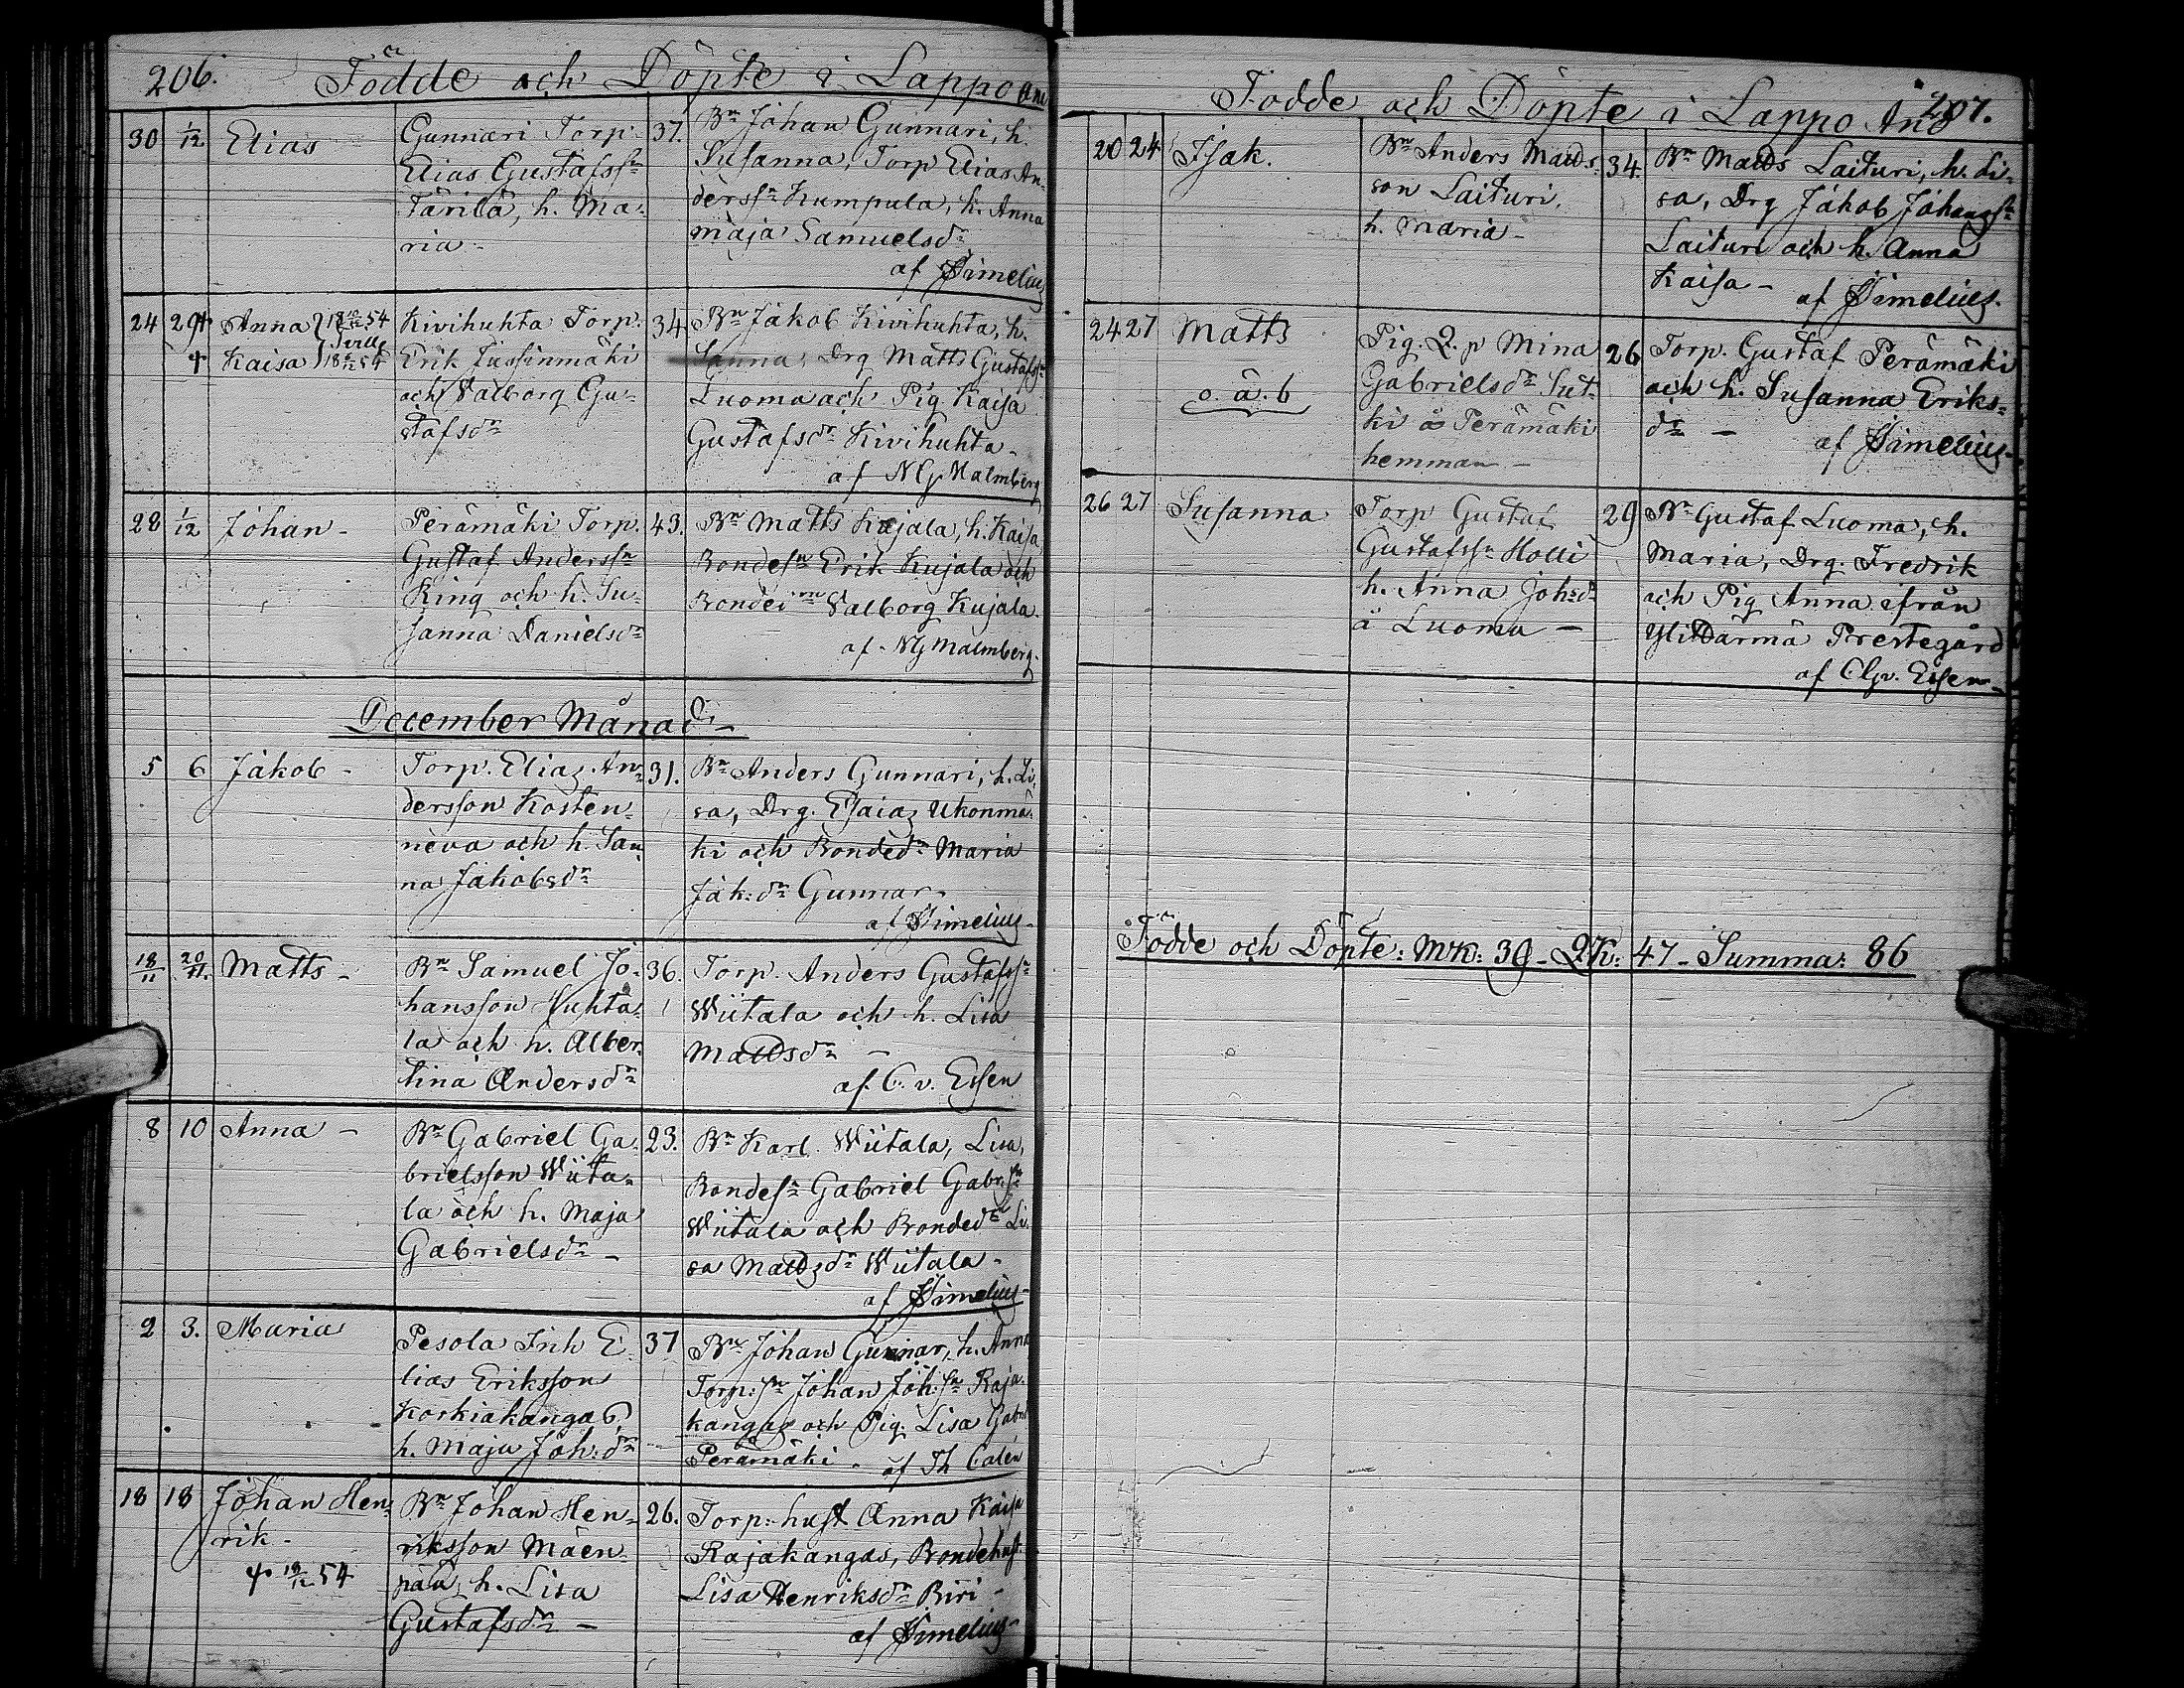 206. Födde och Döpte i Lappo
30 1/12 Elias
Gunnari Torp. 37.
Elias Gustafssn
Tärilä, h. Ma-
ria -
Bn Johan Gunnari, h.
Susanna, Torp Elias An-
derssn Kumpula, h. Anna
Maja Samuelsdr
af Simelius
24 29 Anna
Kaisa
Kivihuhta Torp. 34
Erik Jussinmäki
och Valborg Gu-
stafsdr
Bn Jakob Kivihuhta, h.
Sanna, Drg Matts Gustafssn
Luoma och Pig Kaisa
Gustafsdr Kivihuhta -
af NG Malmberg
28 1/12 Johan -
Perämäki Torp. 43.
Gustaf Anderssn
King och h. Su-
sanna Danielsdr
Bn Matts Kujala, h. Kaisa
Bondesn Erik Kujala och
Valborg Kujala.
af NG Malmberg.
December Månad -
5 6 Jakob -
Torp. Elias An- 31.
dersson Kosten-
neva och h. San
na Jakobsdr
Bn Anders Gunnari, h. Li-
sa, Drg. Esaias Ukonmä-
ki och Bondedr Maria
Jak:dr Gunnar -
af Simelius -
18/11 20/11. Matts -
Bn Samuel Jo- 36.
hansson Huhta-
la och h. Alber-
tina Andersdr
Torp. Anders Gustafssn
Wiitala och h. Lisa
Mattsdr -
af C. v. Essen
8 10 Anna -
Bn Gabriel Ga- 23.
brielsson Wiita-
la och h. Maja
Gabrielsdr -
Bn Karl Wiitala, Lisa,
Bondesn Gabriel Gabr:sn
Wiitala och Bondedr Li-
sa Mattsdr Wiitala -
af Simelius -
2 3. Maria
Pesola Inh E- 37
lias Eriksson
Korkiakangas,
h. Maja Joh:dr
Bn Johan Gunnar, h. Anna
Torp:sn Johan Joh:sn Raja-
kangas och Pig Lisa
Perämäki - af Th Calén
18 18 Johan Hen-
rik -
54
Bn Johan Hen- 26.
riksson Mäen-
pää, h. Lisa
Gustafsdr -
Torp:hust Anna Kaisa
Rajakangas, Bondehust
Lisa Henriksdr Biri -
af Simelius -
Födde och Döpte i Lappo Ano 207.
20 24 Isak.
Bn Anders Matts- 34.
son Laituri,
h. Maria -
Bn Matts Laituri, h. Li-
sa, Drg Jakob Johanssn
Laituri och h. Anna
Kaisa - af Simelius.
24 27 Matts
o. ä. b
Pig. Q. p Mina 26
Gabrielsdr Sut-
ki å Perämäki
hemman -
Torp. Gustaf Perämäki
och h. Susanna Eriks-
dr - af Simelius -
26 27 Susanna
Torp Gustaf 29
Gustafssn Holli
h. Anna Joh:dr
å Luoma -
Bn Gustaf Luoma, h.
Maria, Drg. Fredrik
och Pig Anna ifrån
Ylihärmä Prestegård
af CG v. Essen -
Födde och Döpte: MK: 39 - QK: 47 - Summa: 86